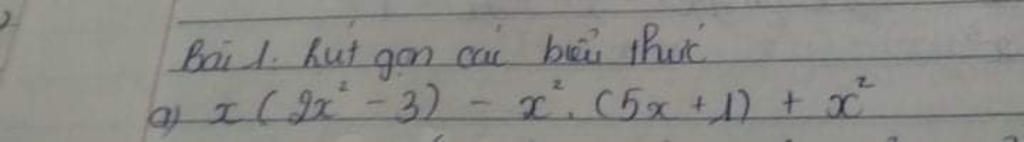 Bài 1. Rút gọn các biểu thức
a) x(2x² - 3) - x². (5x + 1) + x²